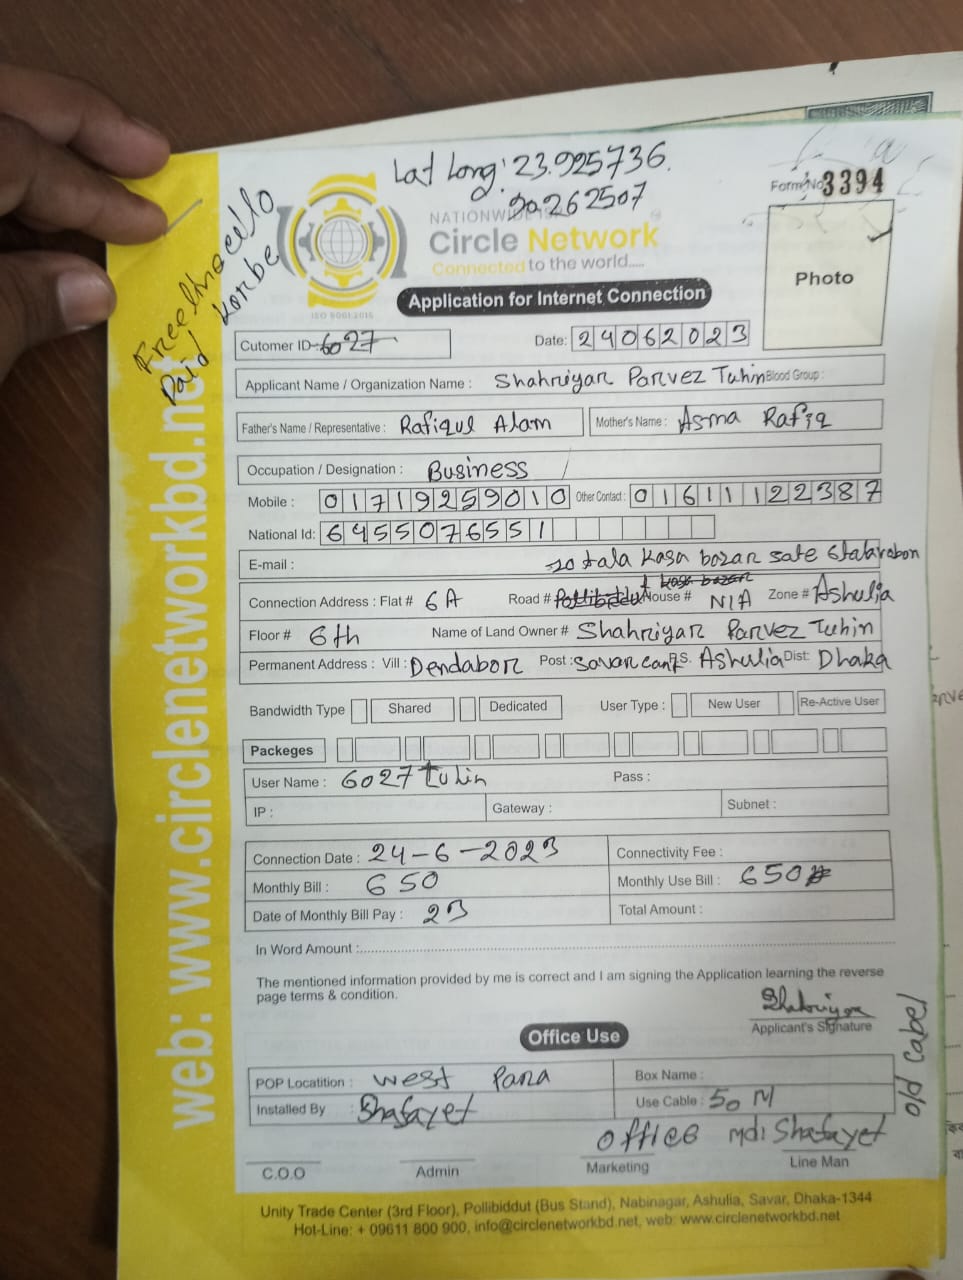 Lat Long: 23.925736.
90.262507
Form No 3394
NATIONWIDE
Circle Network
Connected to the world.....
ISO 9001:2015
Application for Internet Connection
Photo
Free korbe
Paid
Cutomer ID- 6027
Date: 24062023
Applicant Name / Organization Name : Shahriyar Parvez Tuhin Blood Group :
Father's Name / Representative : Rafiqul Alam Mother's Name : Asma Rafiq
Occupation / Designation : Business
Mobile : 01719259010 Other Contact : 01611122387
National Id: 6455076551
E-mail : 10 tala kasa bazar sate
Connection Address : Flat # 6A Road # House # N/A Zone # Ashulia
Floor # 6th Name of Land Owner # Shahriyar Parvez Tuhin
Permanent Address : Vill : Dendabor Post : Savar cant P.S. Ashulia Dist: Dhaka
Bandwidth Type Shared Dedicated User Type : New User Re-Active User
Packeges
User Name : 6027 tuhin Pass :
IP : Gateway : Subnet :
Connection Date : 24-6-2023 Connectivity Fee :
Monthly Bill : 650 Monthly Use Bill : 650
Date of Monthly Bill Pay : 23 Total Amount :
In Word Amount :
The mentioned information provided by me is correct and I am signing the Application learning the reverse
page terms & condition.
Shahriyar
Applicant's Signature
Office Use
POP Locatition : West Para Box Name :
Installed By : Shafayet Use Cable : 50 M
old cabel
office Md: Shafayet
C.O.O Admin Marketing Line Man
Unity Trade Center (3rd Floor), Pollibiddut (Bus Stand), Nabinagar, Ashulia, Savar, Dhaka-1344
Hot-Line: + 09611 800 900, info@circlenetworkbd.net, web: www.circlenetworkbd.net
web: www.circlenetworkbd.net